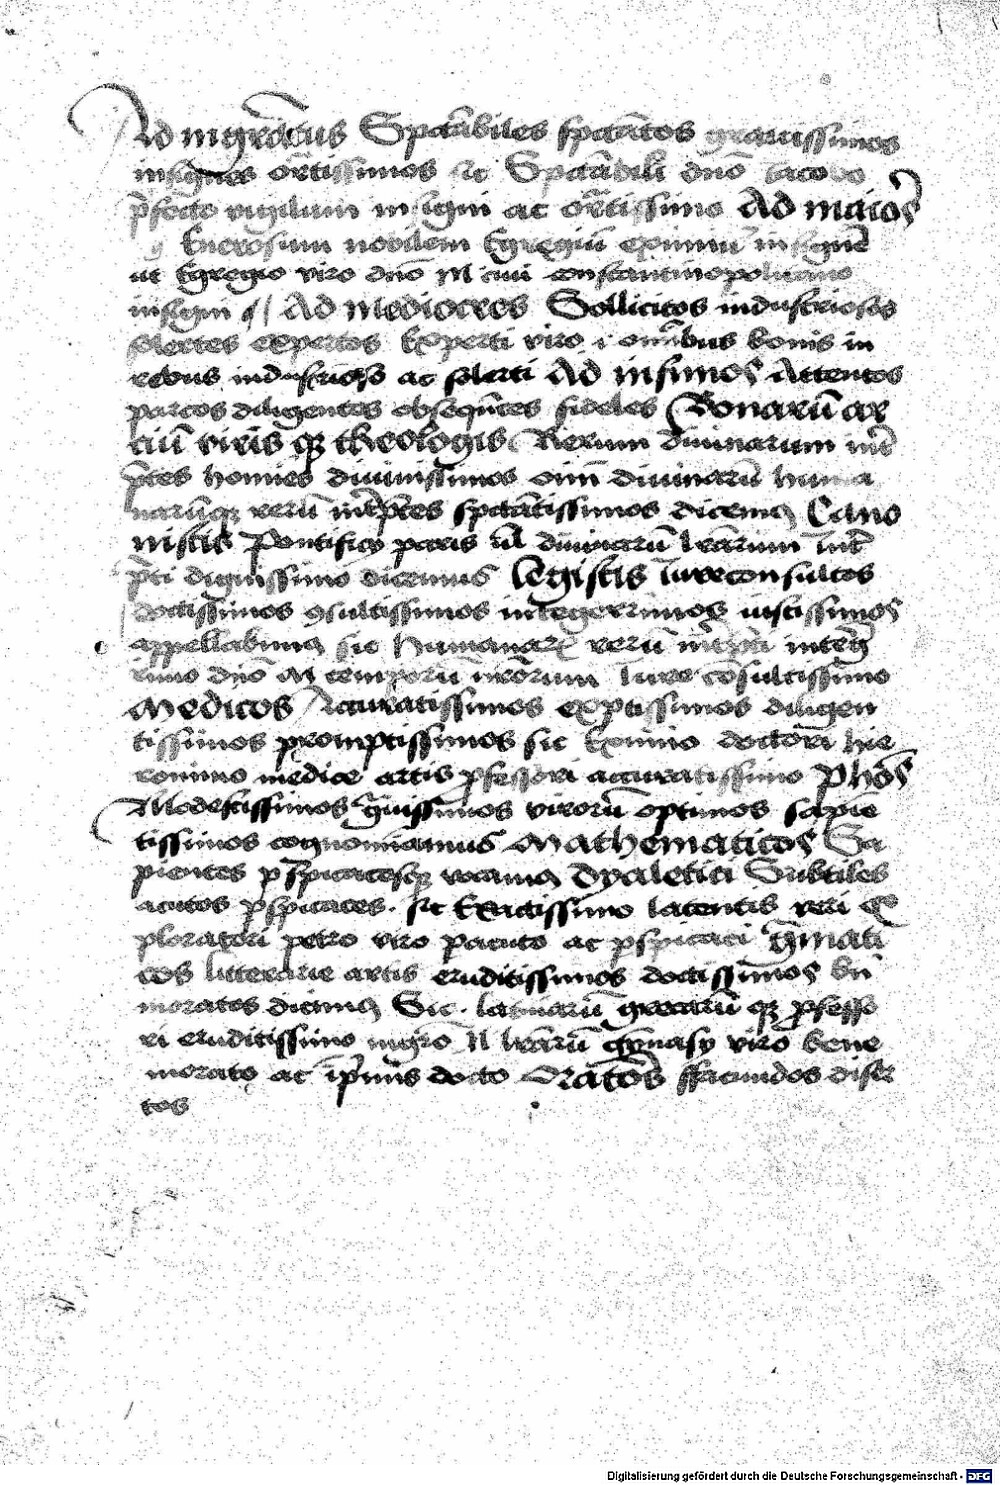 Ad mgrātus Spcābiles spcātos gratissimos
insignes orātissimos ac Spcābili dnō Iacobo
pfecto vigilum insigni ac orātissimo Ad maioṙ
Generosum nobilem Egregiū eximium insignē
ut Egregio viro dnō M constantinopolitano
insigni Ad mediocres Sollicitos industriosos
solertes expertos Experti viro omībus bonis in
rebus industrioso ac solerti Ad infimos Attentos
parcos diligentes obsequētes fideles Bonarū ar
tiū viris theologis Rerum divinarum intr̄
p̄tes homies divinissimos divinarū huma
narūqȝ rerū intp̄tes spcātissimos dicemꝰ Cano
nistis Pontificy divinarū lrārum intr̄
p̄ti dignissimo dicemus Legistis Iureconsultos
doctissimos ꝯsultissimos integerrimos iustissimos
appellabimꝰ sic humanarꝫ rerū intp̄ti integr̄
rimo dnō iure cōsultissimo
Medicos Accuratissimos exptissimos diligen
tissimos promptissimos sic Eximio doctori hie
ronimo medice artis pfessori accuratissimo Phōs
Modestissimos gvissimos virorū optimos sapie
tissimos cognomiamus Mathematicos Sa
pientes pspicacesqȝ vocamꝰ Dyaletici Subtiles
acutos pspicaces. sic Exactissimo latentis veri ex
ploratori petro viro acuto ac pspicaci Grmati
cos litterarie artis eruditissimos doctissimos bn̄
moratos dicimꝰ Sic. latinarū grecarū qȝ pfesso
ri eruditissimo mgrō N lrārū gymnasy viro bene
morato ac ip̄mis docto Oratoēs ffacundos diser
tos
Digitalisierung gefördert durch die Deutsche Forschungsgemeinschaft - DFG